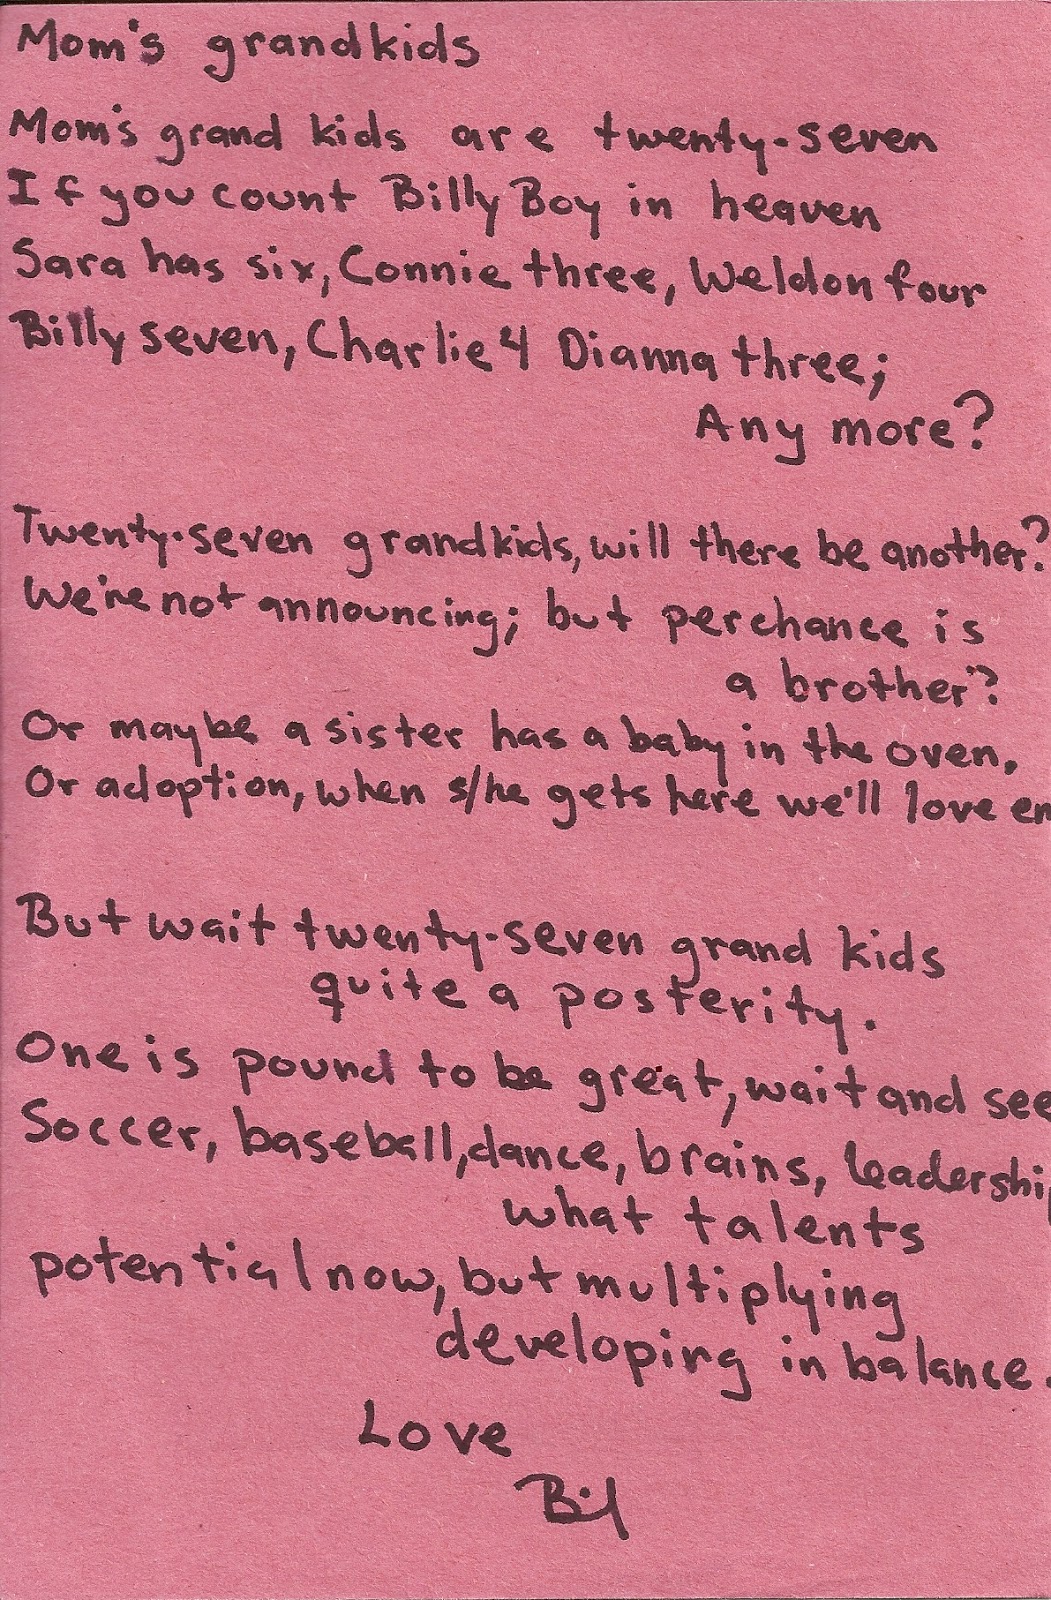 Mom's grandkids
Mom's grand kids are twenty-seven
If you count Billy Boy in heaven
Sara has six, Connie three, Weldon four
Billy seven, Charlie 4 Dianna three;
Any more?
Twenty-seven grandkids, will there be another?
We're not announcing; but perchance is
a brother?
Or maybe a sister has a baby in the oven,
Or adoption, when s/he gets here we'll love em
But wait twenty-seven grand kids
quite a posterity.
One is pound to be great, wait and see
Soccer, baseball, dance, brains, leaderships
what talents
potential now, but multiplying
developing in balance.
Love
Bil